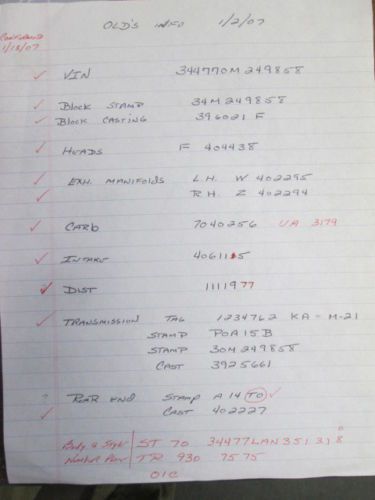 OLD'S INFO 1/2/07
1/18/07
VIN 344770M249858
BLOCK STAMP 34M249858
BLOCK CASTING 396021 F
HEADS F 404438
EXH. MANIFOLDS L.H. W 402295
R.H. Z 402294
CARB 7040256 UA 3179
INTAKE 406115
DIST 1111977
TRANSMISSION TAG 1234762 KA = M-21
STAMP POA15B
STAMP 30M249858
CAST 3925661
? REAR END STAMP A 14 TO
CAST 402227
Body & Style ST 70 34477LAN351318
Number Plate TR 930 7575
OIC